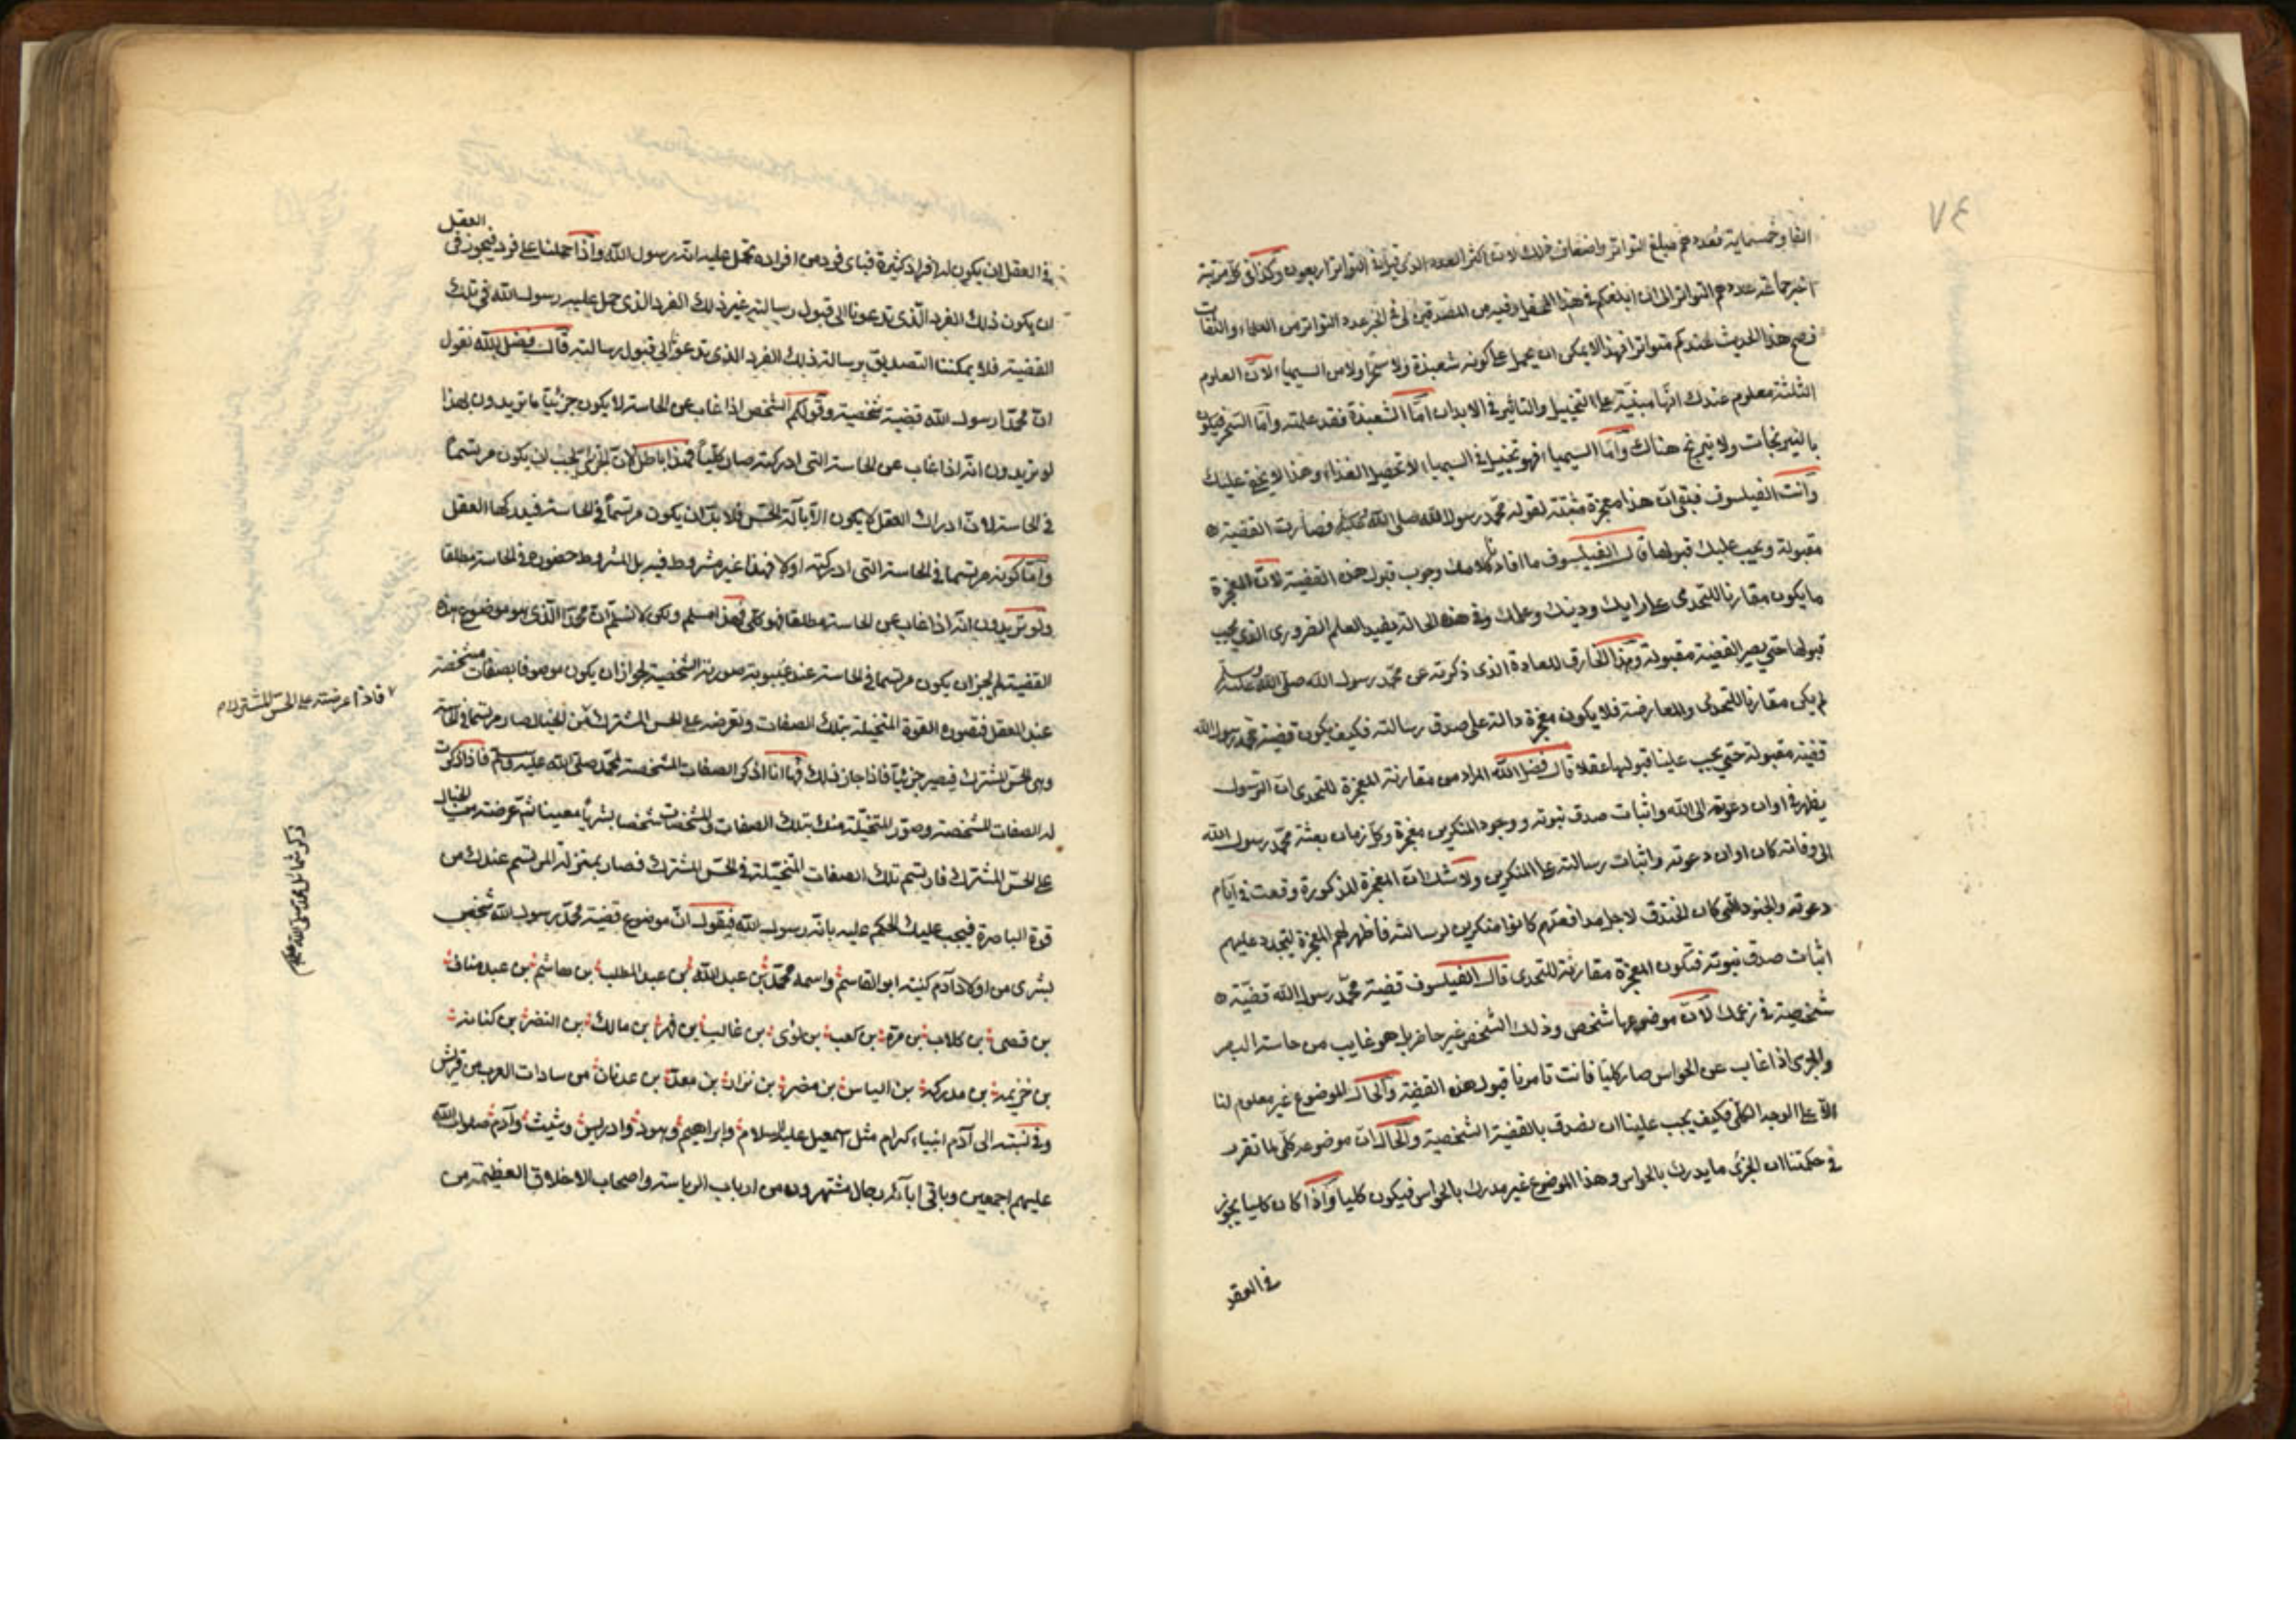 ٧٤
الفا وخمسماية فعددهم مبلغ التواتر واضعاف ذلك لان اكثر العدد الذي قيل في التواتر اربعون وكذا في كل مرتبة
اخبر جماعة عددهم التواتر الى ان ابلغكم في هذا المحفل وفيه من المصدقين لي في الخبر عدد التواتر من العلماء والثقات
فصح هذا الحديث عندكم متواترا فهذا لا يمكن ان يحمل على كونه شعبذة ولا سحرا ولا من السيمياء لان العلوم
الثلثة معلوم عندك انها مبنية على التخييل والتاثير في الابدان اما الشعبذة فقد علمته واما السحر فيكون
بالنيرنجات ولا نيرنج هناك واما السيمياء فهو تخييل في السيمياء لا تحصيل الغذاء وهذا لا يخفى عليك
وانت الفيلسوف فبقي ان هذا معجزة مثبتة لقوله محمد رسول الله صلى الله عليه فصارت القضية
مقبولة ويجب عليك قبولها قال الفيلسوف ما افاد كلامك وجوب قبول هذه القضية لان المعجزة
ما يكون مقارنا للتحدي على رايك ودينك وعلمك وفي هذه الحالة يفيد العلم الضروري الذي يجب
قبولها حتى يصير القضية مقبولة وهذا الخارق للعادة الذي ذكرته عن محمد رسول الله صلى الله عليه وسلم
لم يكن مقارنا للتحدي والمعارضة فلا يكون معجزة دالة على صدق رسالته فكيف يكون قضية محمد رسول الله
قضية مقبولة حتى يجب علينا قبولها عقلا قال فضل الله المراد من مقارنة المعجزة للتحدي ان الرسول
يظهر في اوان دعوته الى الله واثبات صدق نبوته ووجود المنكرين معجزة وكل زمان بعثة محمد رسول الله
الى وفاته كان اوان دعوته واثبات رسالته على المنكرين ولا شك ان المعجزة المذكورة وقعت في ايام
دعوته والجنود التي كان الخندق لاجل مدافعتهم كانوا منكرين لرسالته فاظهر لهم المعجزة ليتجدد عليهم
اثبات صدق نبوته فتكون المعجزة مقارنة للتحدي قال الفيلسوف قضية محمد رسول الله قضية
شخصية في زعمك لان موضوعها شخص وذلك الشخص غير حاضر بل هو غايب من حاسة البصر
والجزي اذا غاب عن الحواس صار كليا فانت تامرنا قبول هذه القضية والحال الموضوع غير معلوم لنا
الا على الوجه الكلي فكيف يجب علينا ان نصدق بالقضية الشخصية والحال ان موضوعه كلي لما تقرر
في حكمتنا ان الجزئي ما يدرك بالحواس وهذا الموضوع غير مدرك بالحواس فيكون كليا واذا كان كليا يجوز
في العقل
في العقل ان يكون له افراد كثيرة فباي فرد من افراده تحمل عليه انه رسول الله واذا حملنا على فرد فيجوز في العقل
ان يكون ذلك الفرد الذي تدعونا الى قبول رسالته غير ذلك الفرد الذي حمل عليه رسول الله في تلك
القضية فلا يمكننا التصديق برسالة ذلك الفرد الذي تدعونا الى قبول رسالته قال فضل الله نقول
ان محمدا رسول الله قضية شخصية وقولكم الشخص اذا غاب عن الحاسة لا يكون جزئيا ما تريدون بهذا
لو تريدون انه اذا غاب عن الحاسة التي ادركته صار كليا فهذا باطل لان الجزئي يجب ان يكون مرتسما
في الحاسة لان ادراك العقل لا يكون الا بآلة الحس فلا بد ان يكون مرتسما في الحاسة فيدركها العقل
واما كونه مرتسما في الحاسة التي ادركته اولا فهذا غير مشروط فيه بل المشروط حضوره في الحاسة مطلقا
ولو تريدون انه اذا غاب عن الحاسة مطلقا فهو كلي فهذا مسلم ولكن لا نسلم ان محمدا الذي هو موضوع هذه
القضية لم يجز ان يكون مرتسما في الحاسة عند غيبوبة صورته الشخصية لجواز ان يكون موصوفا بصفات مشخصة
عند العقل فتصوره القوة المتخيلة بتلك الصفات وتعرضه على الحس المشترك من الخيال صار مرتسما في الحاسة
وهي الحس المشترك فيصير جزئيا فاذا جاز ذلك فها انا اذكر الصفات المشخصة لمحمد صلى الله عليه وسلم فاذا ذكرت
له الصفات المشخصة وصور المتخيلة منك بتلك الصفات والمشخصات شخصا بشريا معينا ثم عرضته من الخيال
على الحس المشترك فارتسم تلك الصفات المتخيلة في الحس المشترك فصار بمنزلة المرتسم عندك من
قوة الباصرة فيجب عليك الحكم عليه بانه رسول الله فيقول ان موضوع قضية محمد رسول الله شخص
بشرى من اولاد آدم كنيته ابو القاسم واسمه محمد بن عبد الله بن عبد المطلب بن هاشم بن عبد مناف
بن قصى بن كلاب بن مرة بن كعب بن لؤى بن غالب بن فهر بن مالك بن النضر بن كنانة
بن خزيمة بن مدركة بن الياس بن مضر بن نزار بن معد بن عدنان من سادات العرب من قريش
وفي نسبته الى آدم انبياء كرام مثل اسمعيل عليه السلام وابراهيم وهود وادريس وشيث وآدم صلوات الله
عليهم اجمعين وباقي ابآئه رجال مشتهرون من ارباب الرياسة واصحاب الاخلاق العظيمة من
فاذا عرضته على الحس المشترك
ذكر شمائل محمد صلى الله عليه وسلم